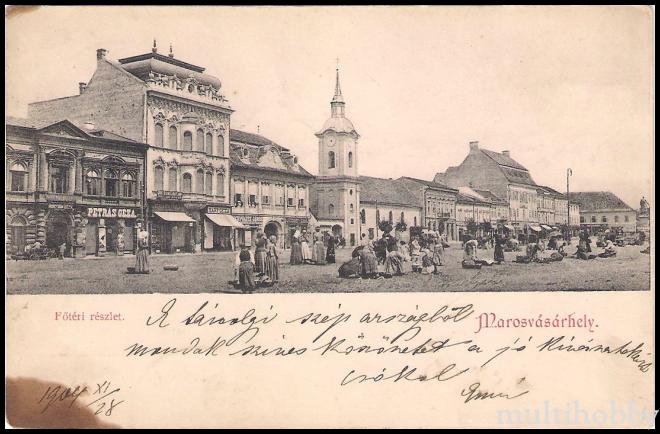 PETRÁS GÉZA
Főtéri részlet.
Marosvásárhely.
A távolgi szép országból
mondok szives köszönetet a jó kívánatokért
csókol
1904 XI/28
multihobby